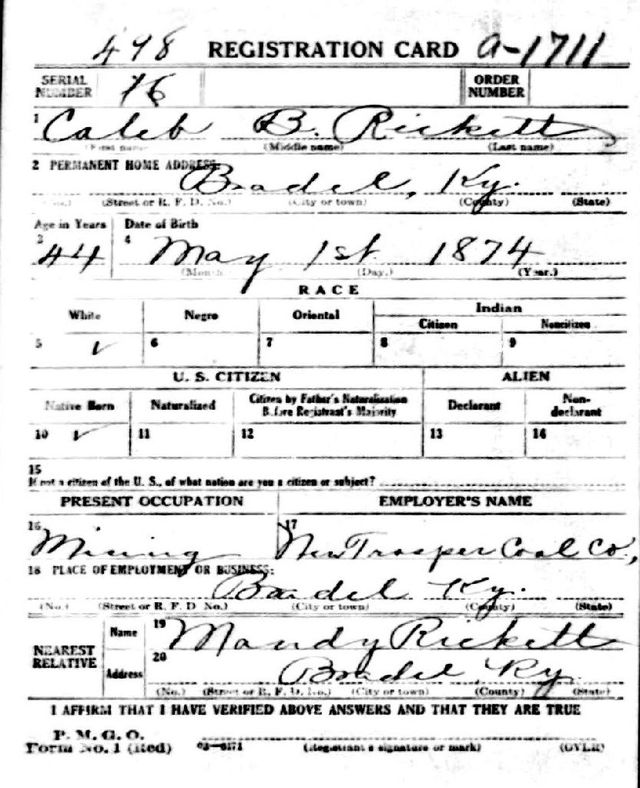 498 REGISTRATION CARD a-1711
SERIAL NUMBER 76 ORDER NUMBER
1 Caleb B. Rickett
(First name) (Middle name) (Last name)
2 PERMANENT HOME ADDRESS:
Bradel, Ky.
(No.) (Street or R. F. D. No.) (City or town) (County) (State)
Age in Years Date of Birth
3 44 4 May 1st 1874
(Month.) (Day.) (Year.)
RACE
White Negro Oriental Indian
Citizen Noncitizen
5 ✓ 6 7 8 9
U. S. CITIZEN ALIEN
Native Born Naturalized Citizen by Father's Naturalization Before Registrant's Majority Declarant Non-declarant
10 ✓ 11 12 13 14
15
If not a citizen of the U. S., of what nation are you a citizen or subject?
PRESENT OCCUPATION EMPLOYER'S NAME
16 Mining 17 New Trosper Coal Co,
18 PLACE OF EMPLOYMENT OR BUSINESS:
Bradel Ky.
(No.) (Street or R. F. D. No.) (City or town) (County) (State)
NEAREST RELATIVE Name 19 Mandy Rickett
Address 20 Bradel Ky
(No.) (Street or R. F. D. No.) (City or town) (County) (State)
I AFFIRM THAT I HAVE VERIFIED ABOVE ANSWERS AND THAT THEY ARE TRUE
P. M. G. O.
Form No. 1 (Red) 03-6171 (Registrant's signature or mark) (OVER)